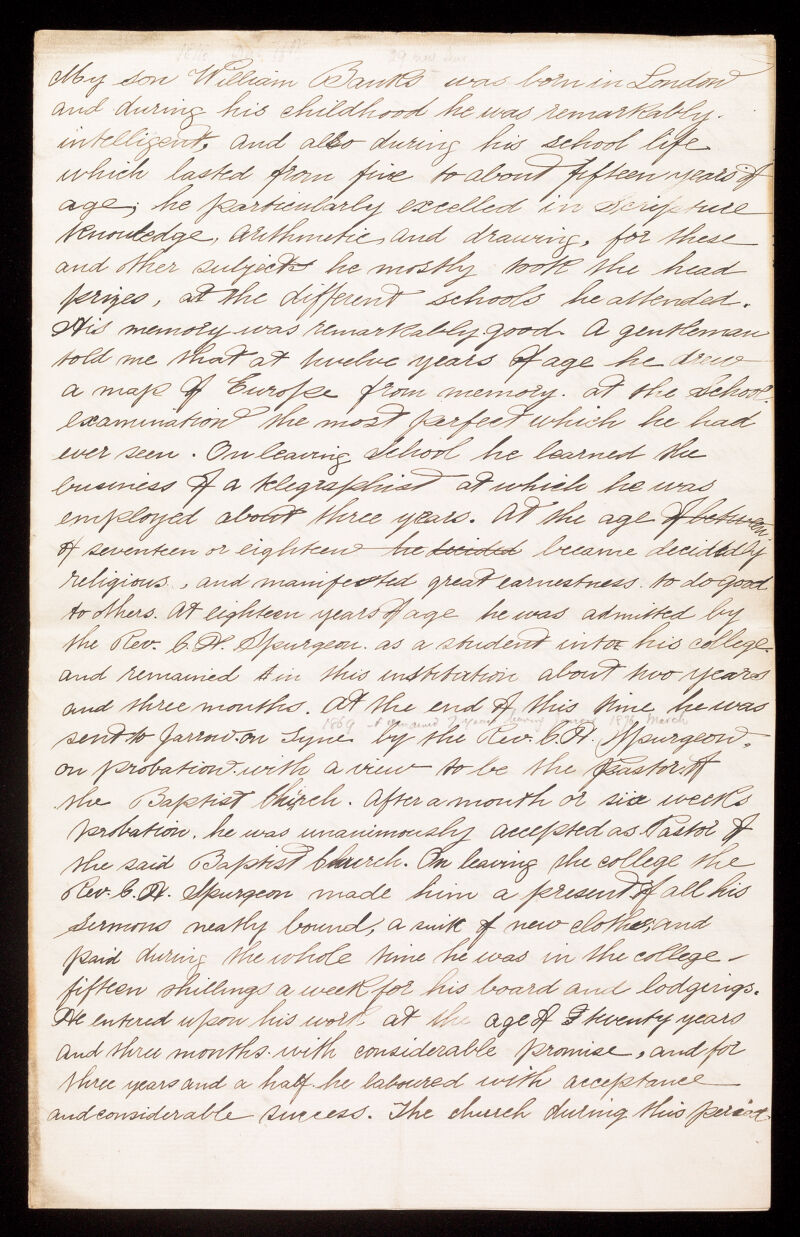 My son William Banks was born in London
and during his childhood he was remarkably
intelligent, and also during his school life
which lasted from five to about fifteen years of
age, he particularly excelled in Scripture
knowledge, arithmetic, and drawing, for these
and other subjects he mostly took the head
prizes, at the different schools he attended.
His memory was remarkably good. A gentleman
told me that at twelve years of age he drew
a map of Europe from memory. at the School
examination the most parfect which he had
ever seen. On leaving School he learned the
business of a telegraphist at which he was
employed about three years. At the age of between
of seventeen or eighteen he decided became decidedly
religious, and manifested great earnestness to do good
to others. At eighteen years of age he was admitted by
the Rev. C. H. Spurgeon as a student into his college
and remained in this institution about two years
and three months. At the end of this time he was
1869 remained 2 years leaving 187 March
sent to Jarrow-on Tyne by the Rev. C. H. Spurgeon,
on probation with a view to be the Pastor of
the Baptist Church. After a month or six weeks
probation, he was unanimously accepted as Pastor of
the said Baptist Church. On leaving the college the
Rev. C. H. Spurgeon made him a present of all his
Sermons neatly bound, a suit of new clothes, and
paid during the whole time he was in the college -
fifteen shillings a week for his board and lodgings.
He entered upon his work at the age of twenty years
and three months with considerable promise, and for
three years and a half he laboured with acceptance
and considerable success. The church during this period